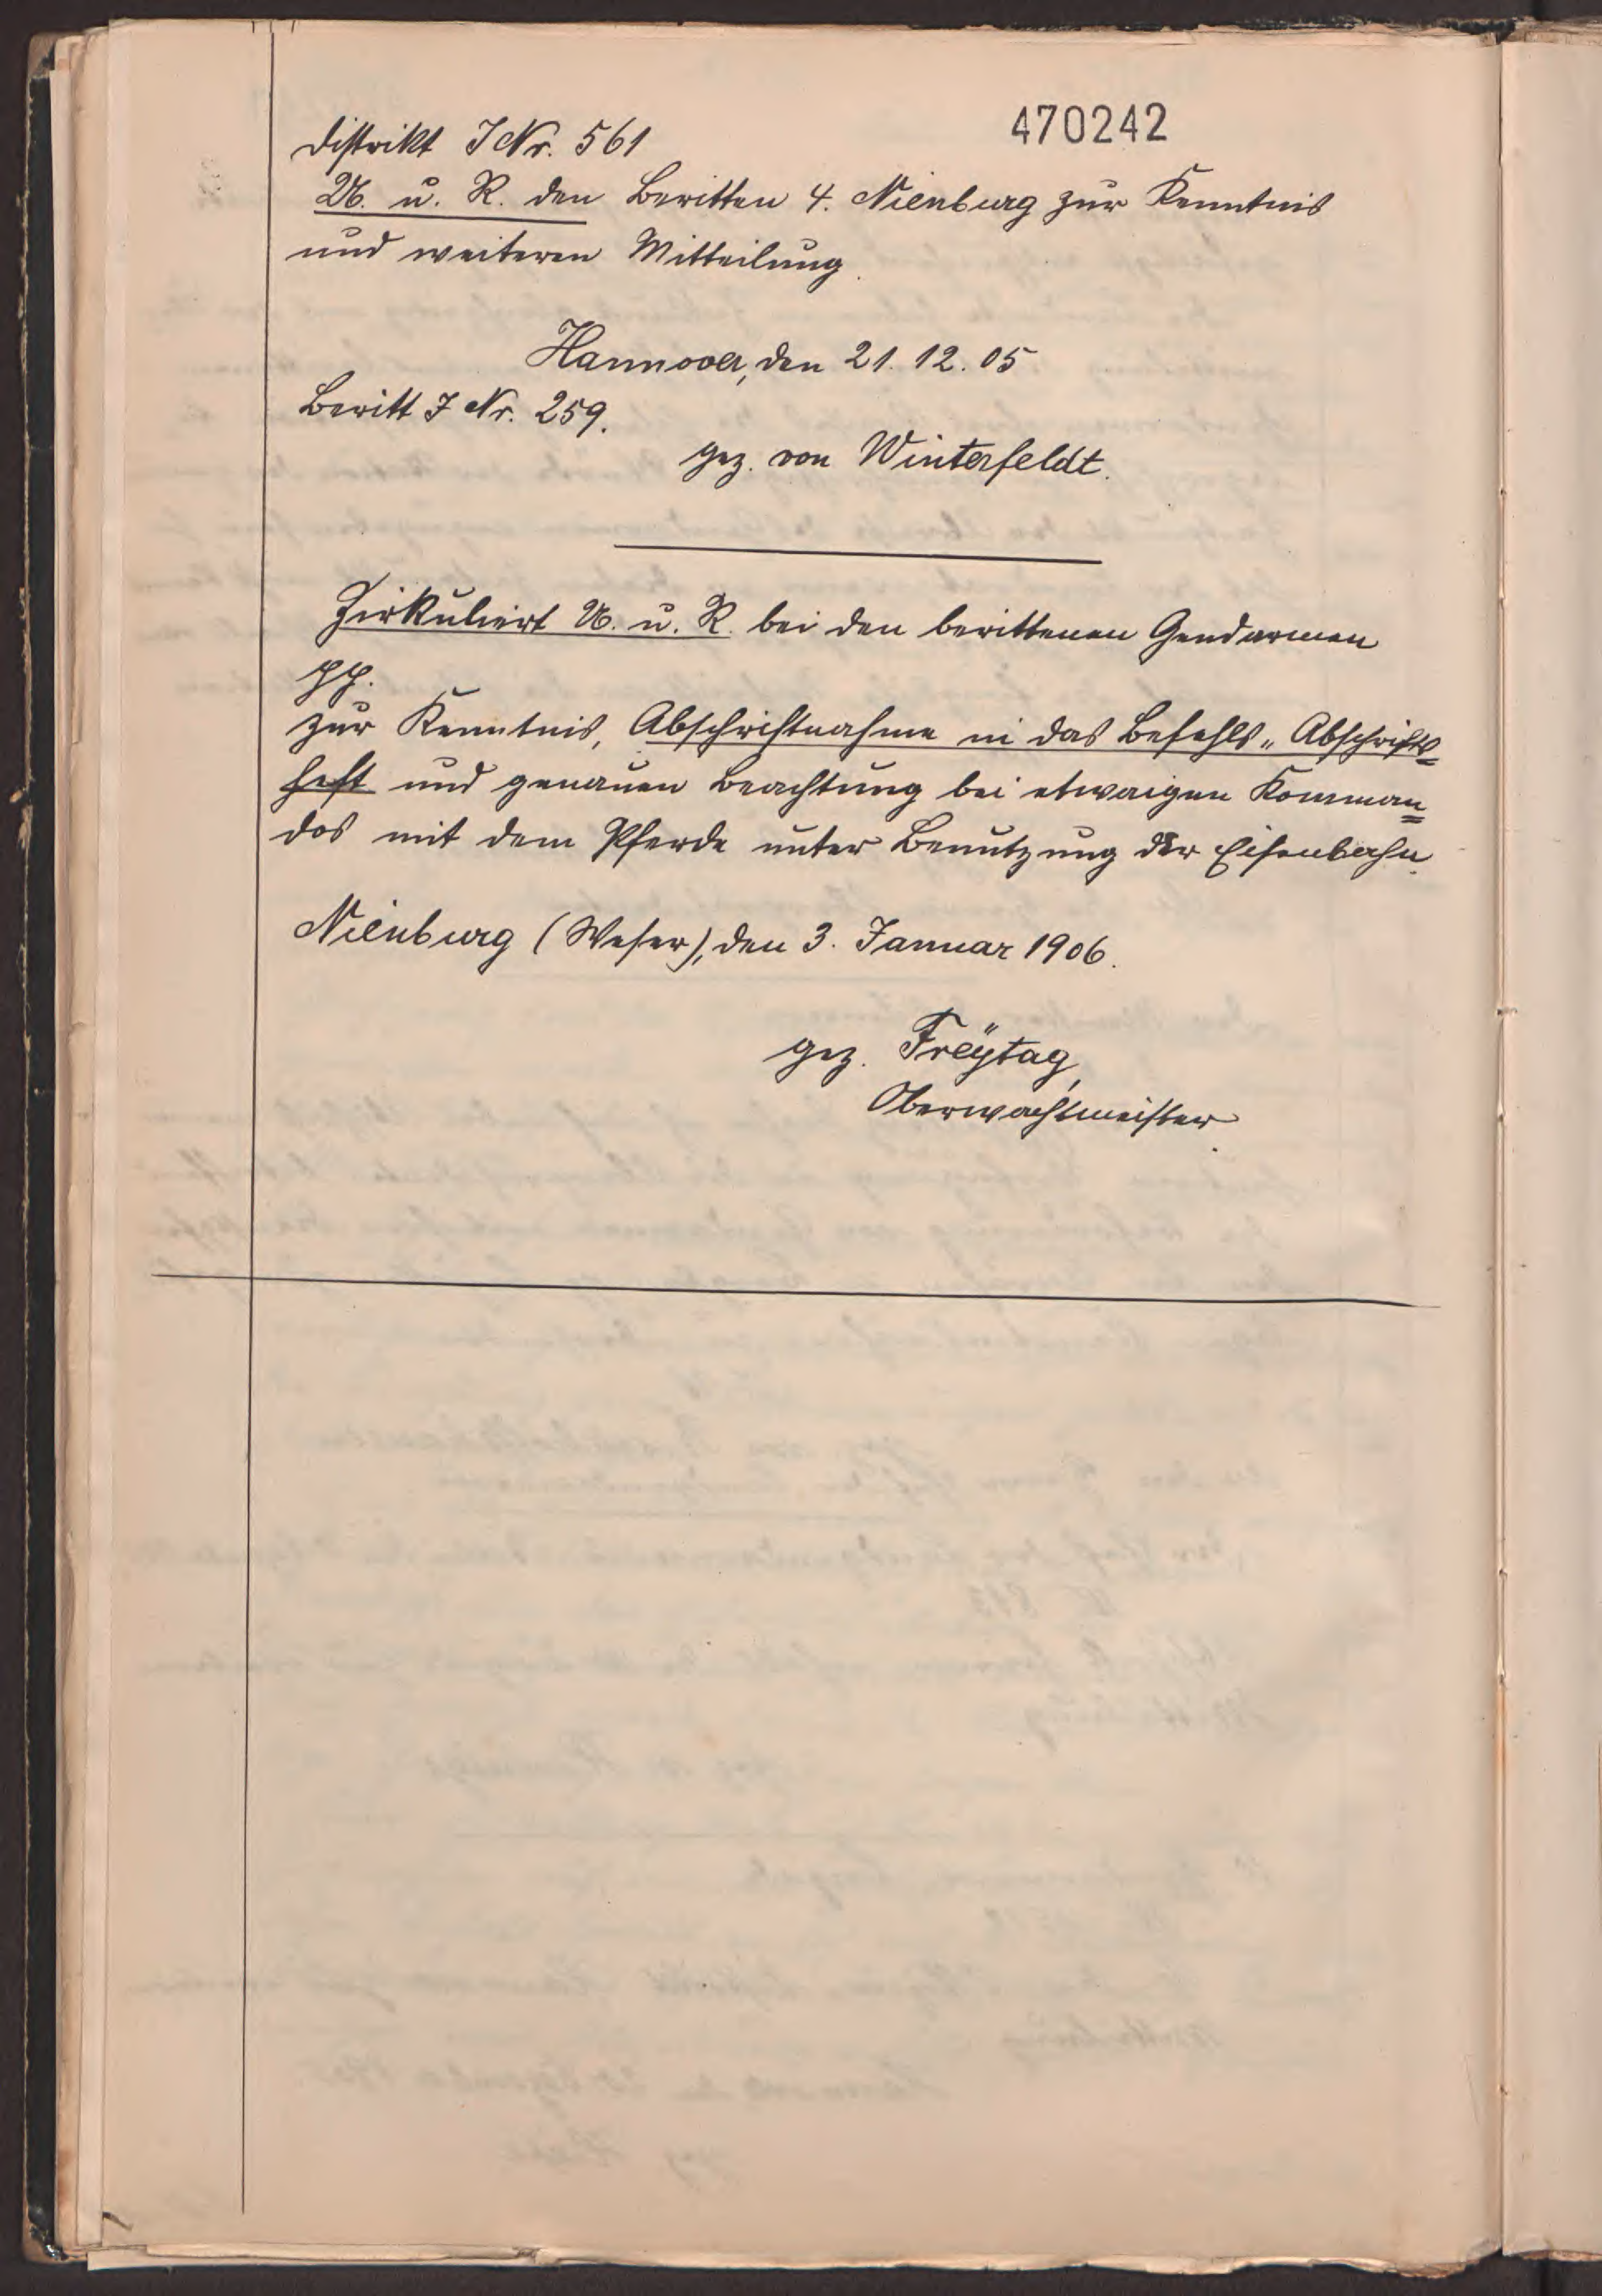 470242
Distrikt J Nr. 561
U. u. R. den Beritten 4. Nienburg zur Kenntnis
und weiteren Mitteilung.
Hannover, den 21. 12. 05
Beritt J Nr. 259.
gez. von Winterfeldt.
Zirkuliert U. u. R. bei den berittenen Gendarmen
pp.
zur Kenntnis, Abschriftnahme in das Befehls-Abschrifts=
heft und genauen Beachtung bei etwaigen Komman=
dos mit dem Pferde unter Benutzung der Eisenbahn.
Nienburg (Weser), den 3. Januar 1906.
gez. Freÿtag,
Oberwachtmeister.